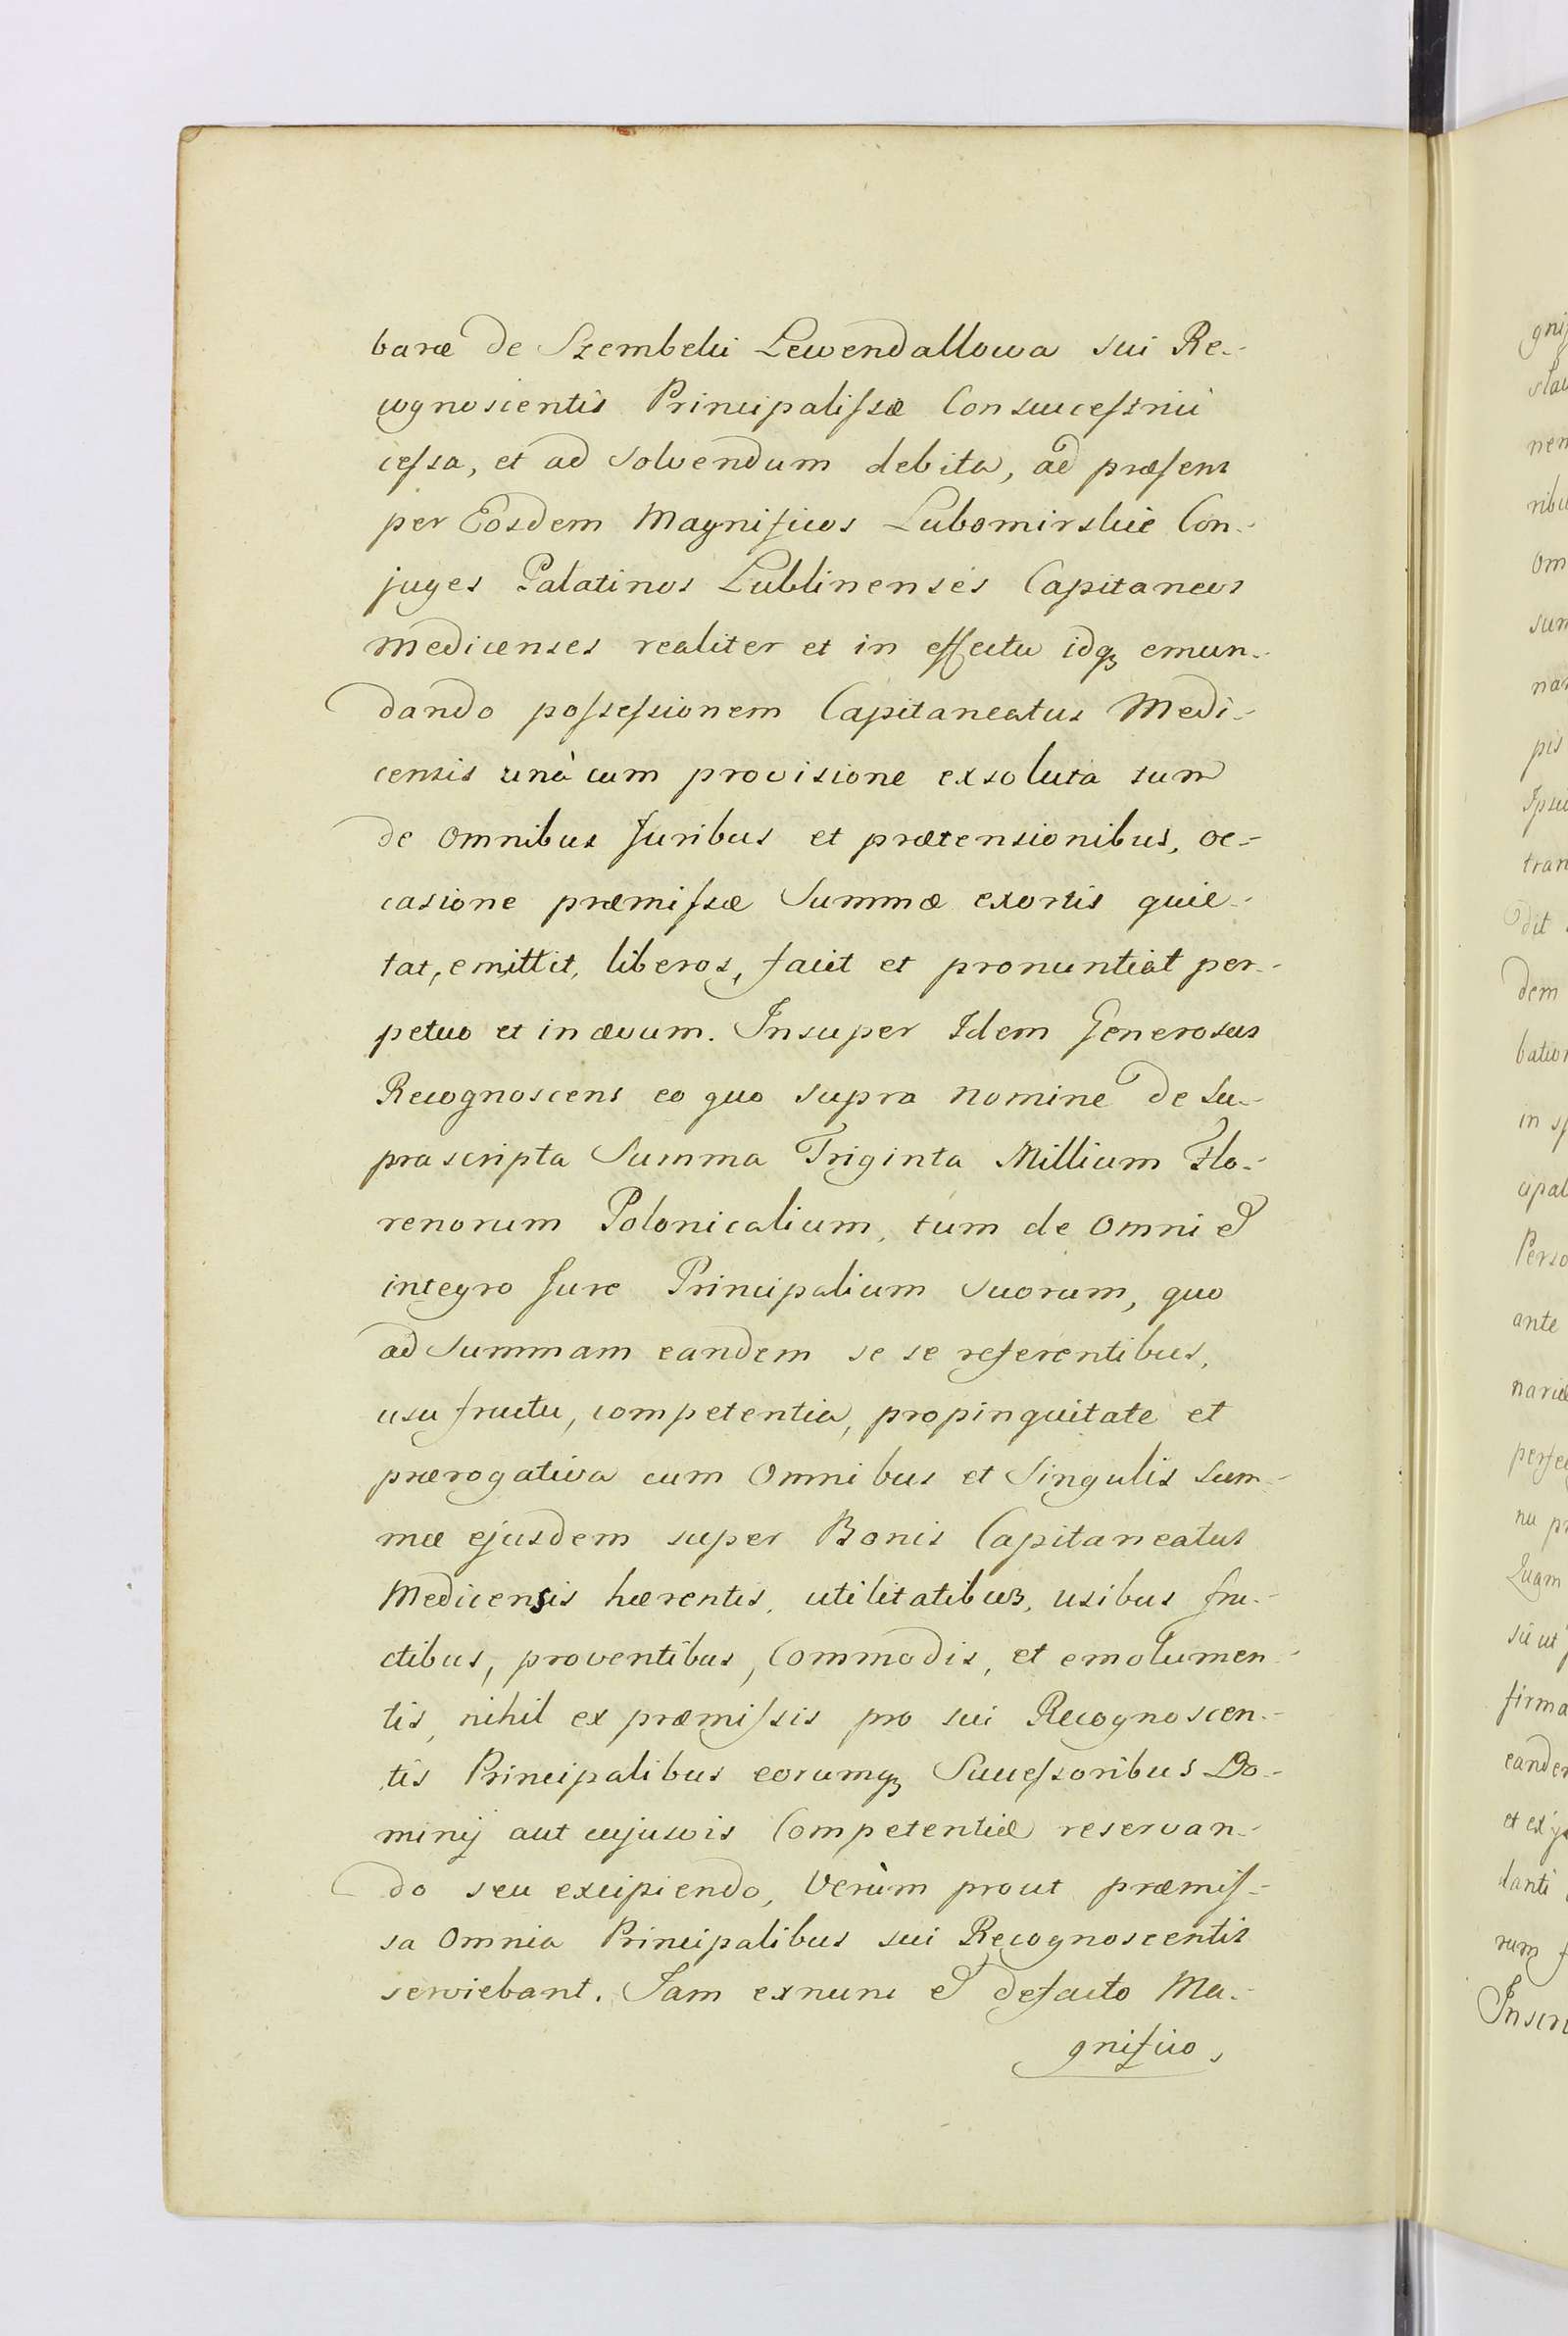 baræ de Szembeki Lewendallowa sui Re-
cognoscentis Principalissæ Consuccestrici
cessa, et ad solvendum debita, ad præsens
per Eosdem Magnificos Lubomirskie Con-
juges Palatinos Lublinenses Capitaneos
Medicenses realiter et in effectu idq3 emun-
dando possessionem Capitaneatus Medi-
censis unà cum provisione exsoluta tum
de omnibus Juribus et prætensionibus, oc-
casione præmissæ Summæ exortis quie-
tat, emittit, liberos, facit et pronuntiat per-
petuo et in ævum. Insuper Idem Generosus
Recognoscens eo quo supra nomine de su-
prascripta Summa Triginta Millium Flo-
renorum Polonicalium, tum de omni et
integro Jure Principalium suorum, quo
ad Summam eandem se se referentibus,
usufructu, competentia, propinquitate et
prærogativa cum Omnibus et Singulis Sum-
mæ ejusdem super Bonis Capitaneatus
Medicensis hærentis, utilitatibus, usibus fru-
ctibus, proventibus, Commodis, et emolumen-
tis, nihil ex præmissis pro sui Recognoscen-
tis Principalibus eorumq3 Successoribus Do-
minij aut cujusvis Competentiæ reservan-
do seu excipiendo, Verùm prout præmis-
sa Omnia Principalibus sui Recognoscentis
serviebant. Jam exnunc et defacto Ma-
gnifico,
gni
nem
om
pis
tran
dit
dem
in
cipal
Perso
ante
nu
Quam
firma
eande
danti
rum